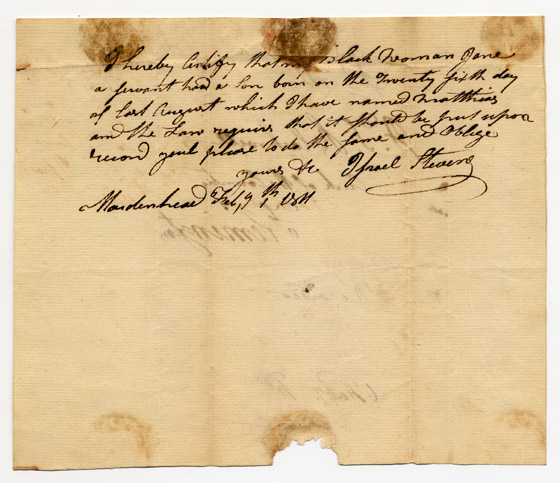 I hereby Certify that my Black Woman Jane
a servant had a Son born on the Twenty fifth day
of Last August which I have named Matthias
and the Law requires that it should be put upon
record youl please to do the same and Oblige
yours &c Israel Stevens
Maidenhead Feby 9th